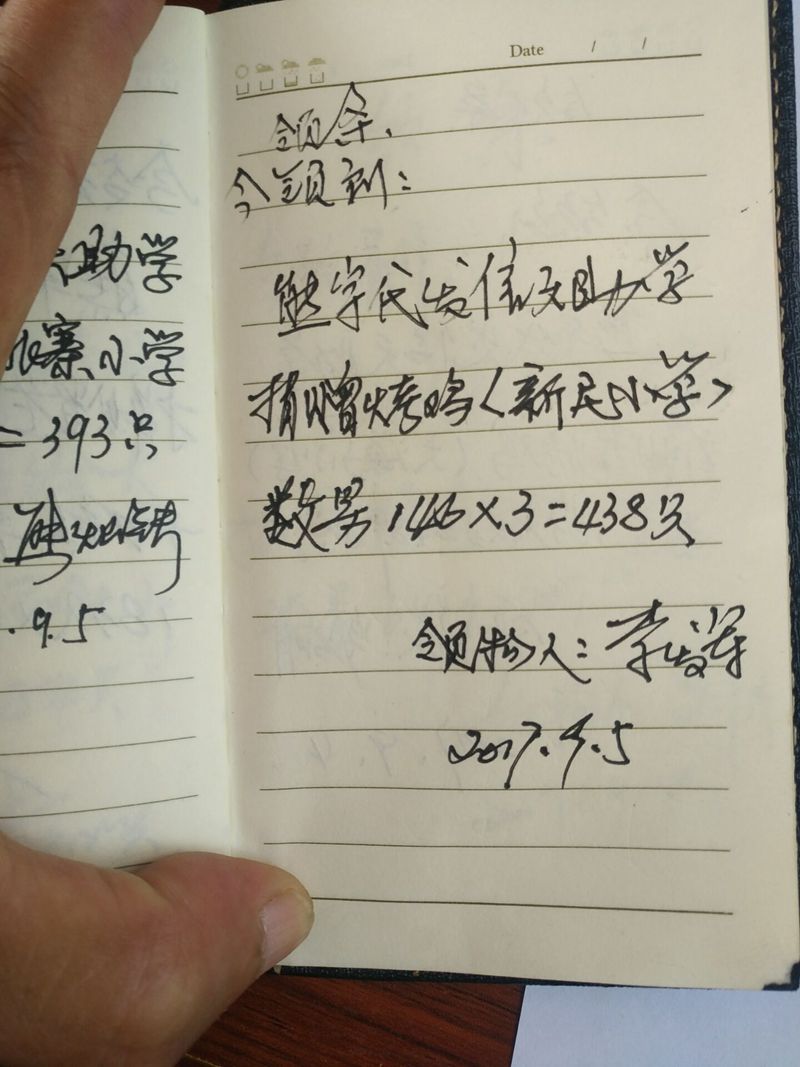 助学
寨小学
=393只
.9.5
Date / /
领条.
今领到:
熊宇代发信天助学
捐赠烤鸡(新民小学)
数男 146×3=438只
领物人:李发军
2017.9.5